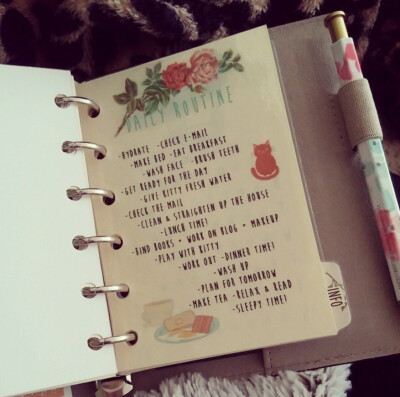 DAILY ROUTINE
-HYDRATE -CHECK E-MAIL
-MAKE BED -EAT BREAKFAST
-WASH FACE -BRUSH TEETH
-GET READY FOR THE DAY
-GIVE KITTY FRESH WATER
-CHECK THE MAIL
-CLEAN & STRAIGHTEN UP THE HOUSE
-LUNCH TIME!
-BIND BOOKS • WORK ON VLOG • MAKEUP
-PLAY WITH KITTY
-WORK OUT -DINNER TIME!
-WASH UP
-PLAN FOR TOMORROW
-MAKE TEA -RELAX & READ
-SLEEPY TIME!
INFO